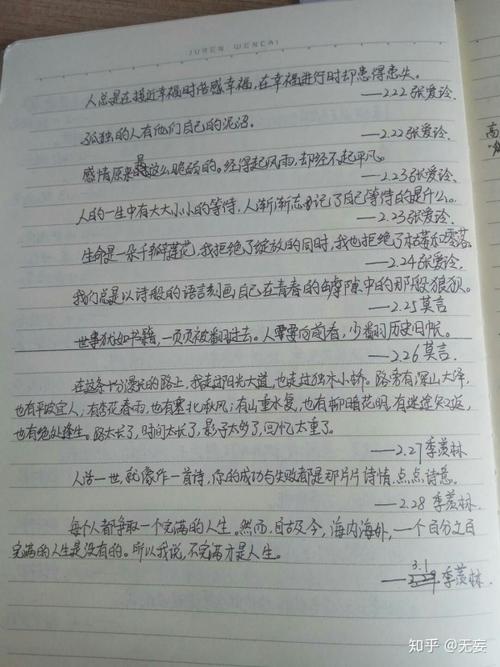 JUREN WENCAI
人总是在接近幸福时倍感幸福,在幸福进行时却患得患失。
——2.22张爱玲.
孤独的人有他们自己的泥沼。
——2.22张爱玲.
感情原来是这么脆弱的。经得起风雨,却经不起平凡。
——2.23张爱玲.
人的一生中有大大小小的等待,人渐渐忘记了自己等待的是什么。
——2.23张爱玲.
生命是一朵千瓣莲花,我拒绝了绽放的同时,我也拒绝了枯萎和零落.
——2.24张爱玲.
我们总是以诗般的语言刻画自己在青春的罅隙中的那段狼狈。
——2.25莫言
世事犹如书籍,一页页被翻过去。人要向前看,少翻历史旧帐。
——2.26莫言.
在这条十分漫长的路上,我走过阳光大道,也走过独木小桥。路旁有深山大泽,
也有平坡宜人;有杏花春雨,也有塞北秋风;有山重水复,也有柳暗花明;有迷途知返,
也有绝处逢生。路太长了,时间太长了,影子太多了,回忆太重了。
——2.27季羡林
人活一世,就像作一首诗,你的成功与失败都是那片片诗情,点点诗意。
——2.28 季羡林.
每个人都争取一个完满的人生。然而,自古及今,海内海外,一个百分之百
完满的人生是没有的。所以我说,不完满才是人生。
——3.1 季羡林.
高
知乎 @无妄